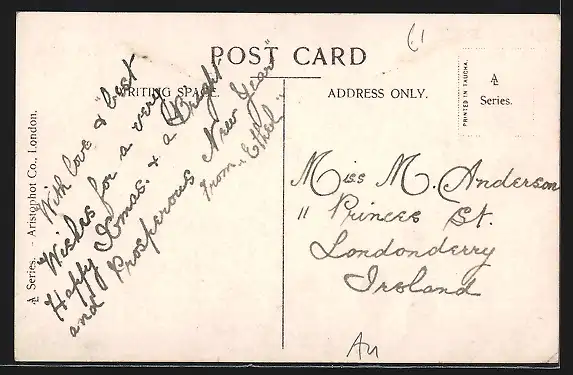 POST CARD
WRITING SPACE.
ADDRESS ONLY.
PRINTED IN TAUCHA.
Series.
Series. - Aristophot Co., London.
With love & best
Wishes for a very
Happy Xmas. & a Bright
and Prosperous New Year
from "Ethel"
Miss M. Anderson
11 Princes St.
Londonderry
Ireland